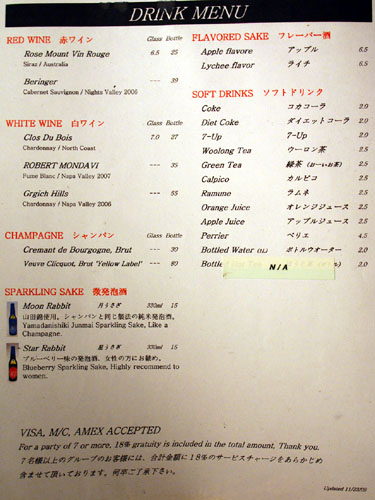 DRINK MENU
RED WINE 赤ワイン Glass Bottle
Rose Mount Vin Rouge 6.5 25
Siraz / Australia
Beringer --- 39
Cabernet Sauvignon / Nights Valley 2006
WHITE WINE 白ワイン Glass Bottle
Clos Du Bois 7.0 27
Chardonnay / North Coast
ROBERT MONDAVI --- 35
Fume Blanc / Napa Valley 2007
Grgich Hills --- 55
Chardonnay / Napa Valley 2006
CHAMPAGNE シャンパン Glass Bottle
Cremant de Bourgogne, Brut --- 39
Veuve Clicquot, Brut 'Yellow Label' --- 89
SPARKLING SAKE 微発泡酒
Moon Rabbit 月うさぎ 330ml 15
山田錦使用。シャンパンと同じ製法の純米発泡酒。
Yamadanishiki Junmai Sparkling Sake, Like a
Champagne.
Star Rabbit 星うさぎ 330ml 15
ブルーベリー味の発泡酒。女性の方にお勧め。
Blueberry Sparkling Sake, Highly recommend to
women.
FLAVORED SAKE フレーバー酒
Apple flavore アップル 6.5
Lychee flavor ライチ 6.5
SOFT DRINKS ソフトドリンク
Coke コカコーラ 2.0
Diet Coke ダイエットコーラ 2.0
7-Up 7-Up 2.0
Woolong Tea ウーロン茶 2.5
Green Tea 緑茶 (おーいお茶) 2.5
Calpico カルピコ 2.5
Ramune ラムネ 2.5
Orange Juice オレンジジュース 2.5
Apple Juice アップルジュース 2.5
Perrier ペリエ 4.5
Bottled Water ボトルウオーター 2.0
Bottle 2.0
N/A
VISA, M/C, AMEX ACCEPTED
For a party of 7 or more, 18% gratuity is included in the total amount. Thank you.
7名様以上のグループのお客様には、合計金額に18%のサービスチャージをあらかじめ
含ませて頂いております。何卒ご了承下さい。
Updated